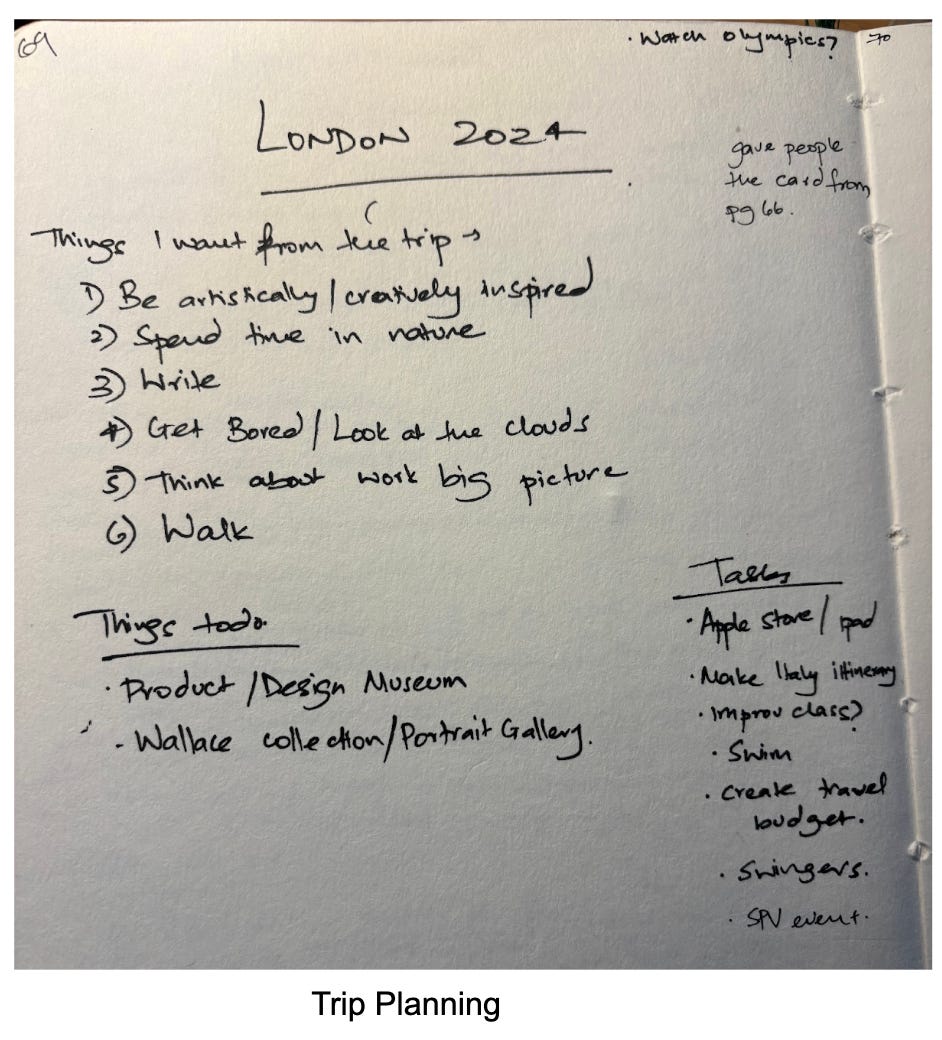 69
· Watch olympics?
70
LONDON 2024
gave people
the card from
pg 66.
Things I want from the trip →
1) Be artistically/creatively inspired
2) Spend time in nature
3) Write
4) Get Bored/Look at the clouds
5) Think about work big picture
6) Walk
Things todo.
· Product/Design Museum
- Wallace collection/Portrait Gallery.
Tasks
· Apple Store/ipad
· Make Italy ittinerary
· Improv class?
· Swim
· Create travel
budget.
· Swingers.
· SPV event.
Trip Planning